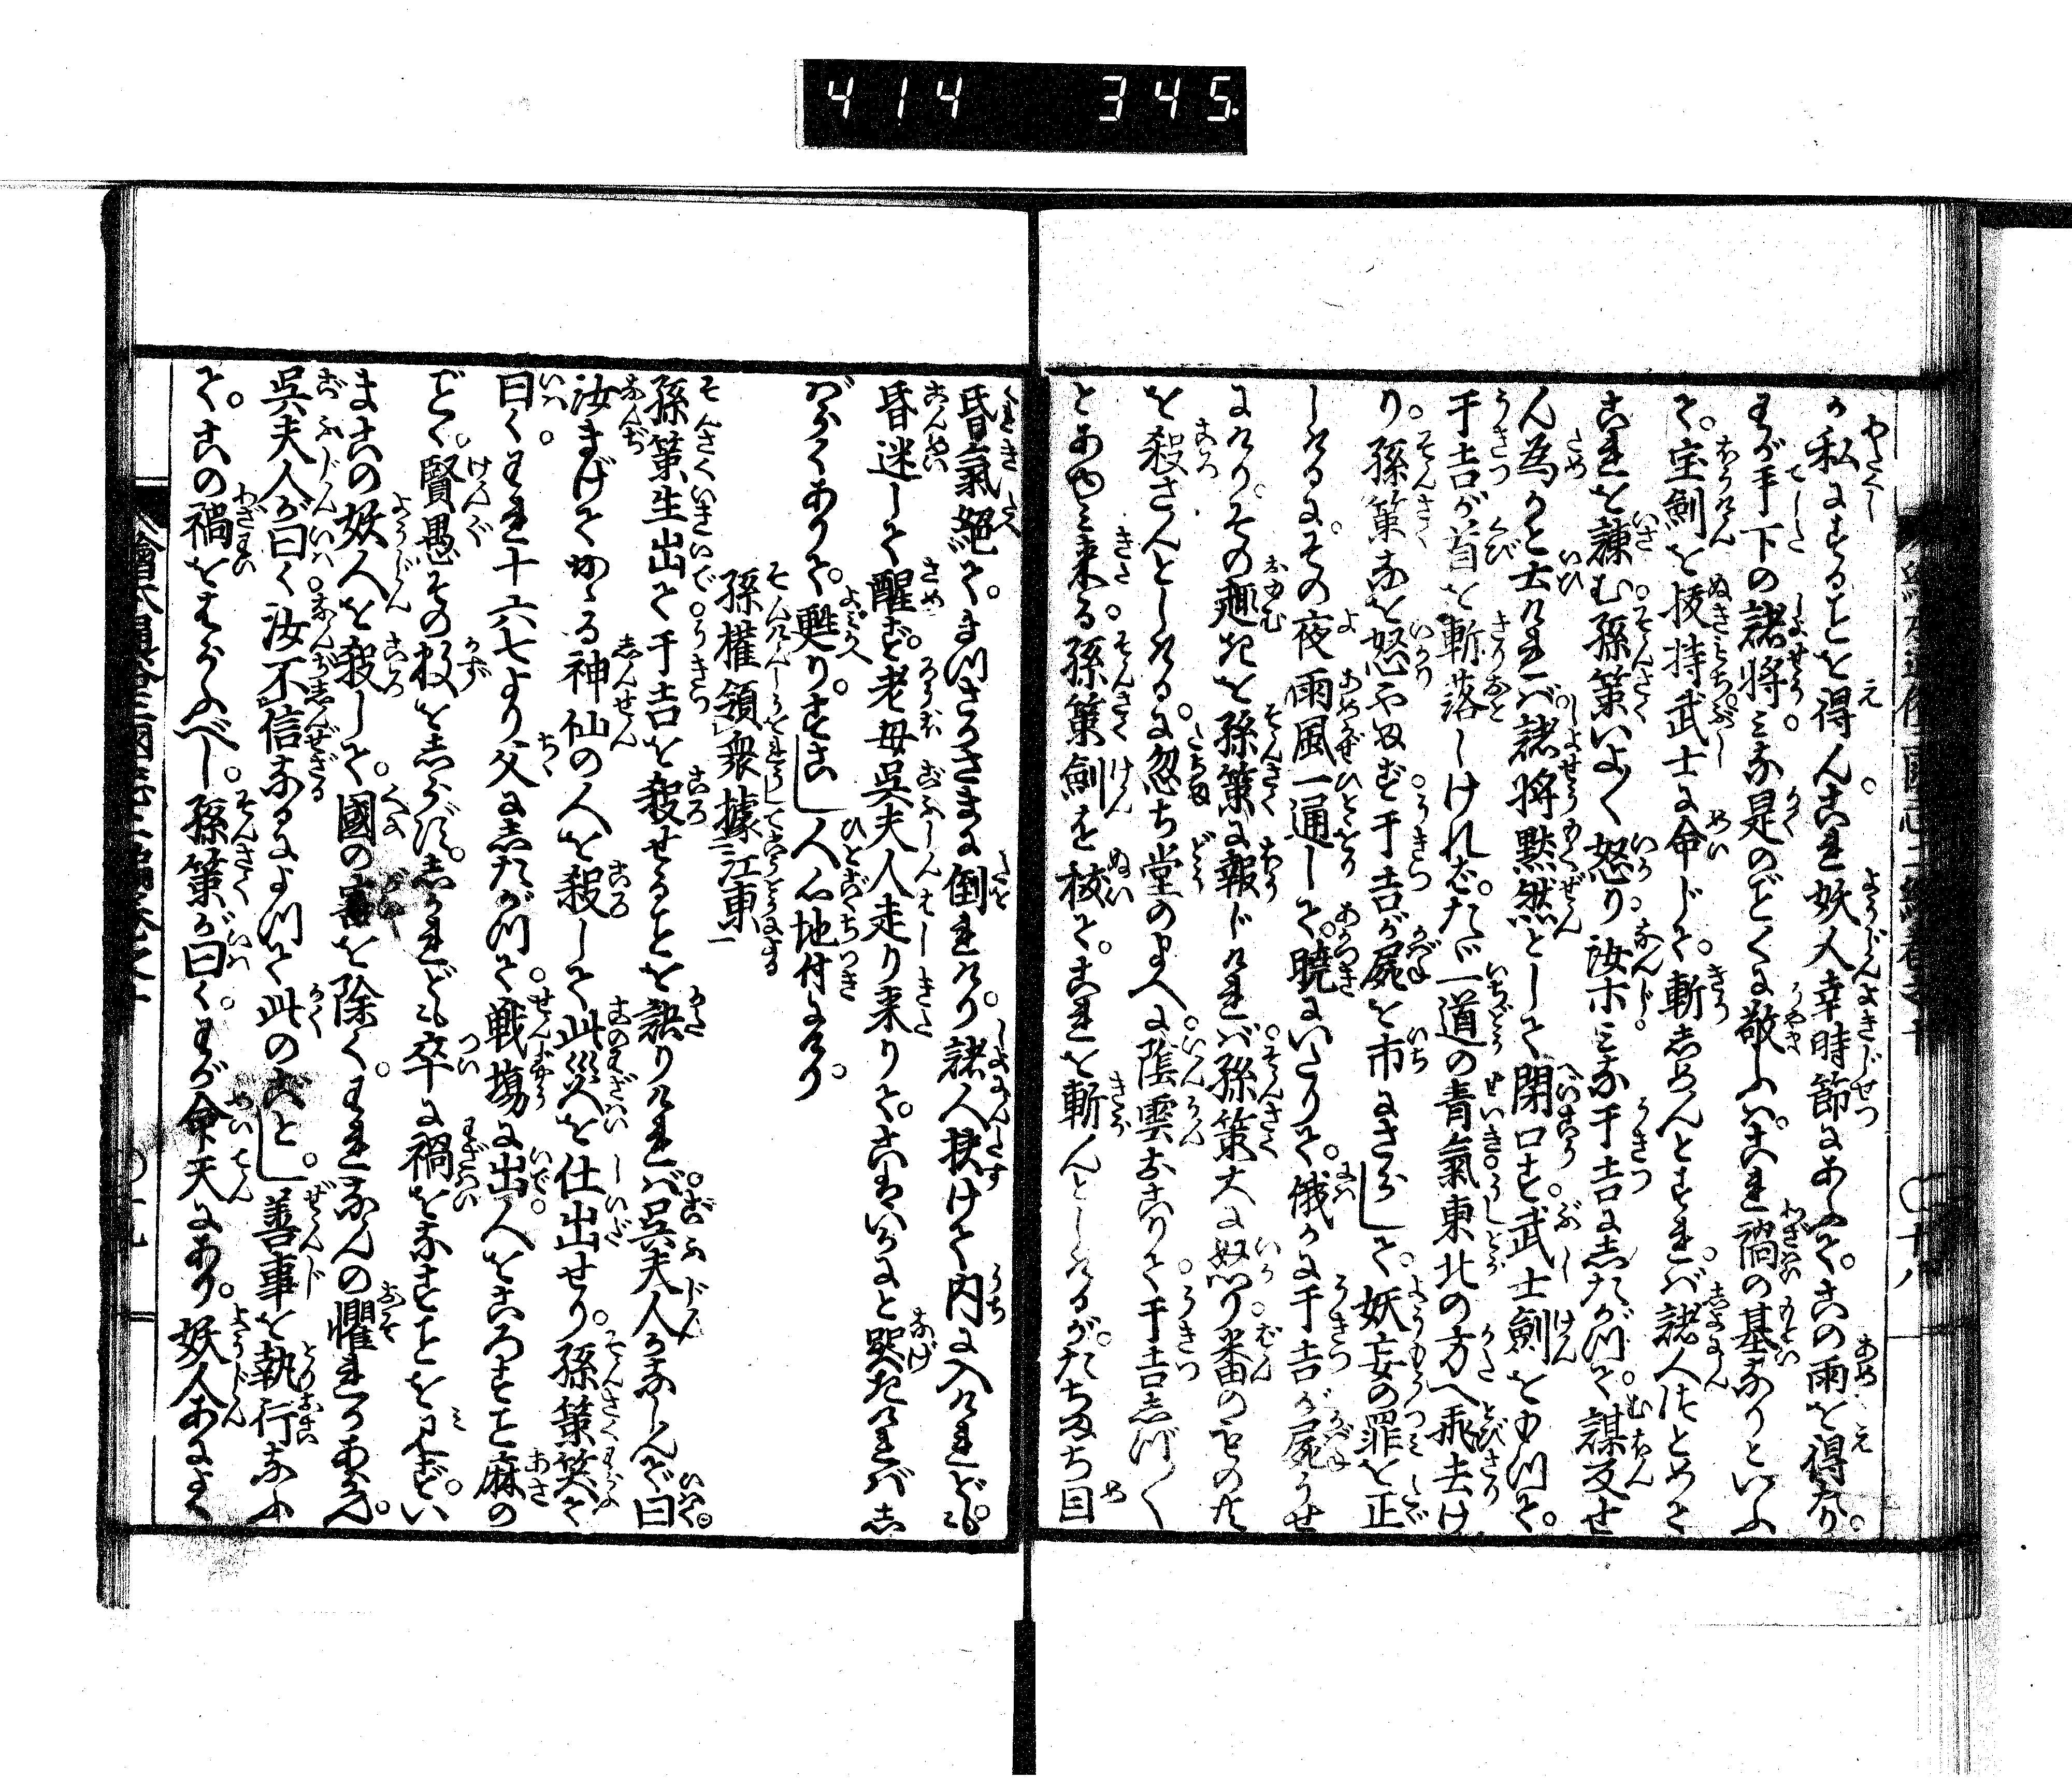 414 345.
か私にすることを得ん。これ妖人幸時節にあふて。この雨を得たり。
わが手下の諸将みな是のごとくに敬ふハ。これ禍の基なりといふ
て。宝剣を抜持武士に命じて。斬しめんとすれバ。諸人はとめさ
これを諫む。孫策いよ〱怒り。汝ホみな于吉にしたがつて。謀反せ
ん為かと云けれバ。諸将黙然として閉口す。武士剣をもつて。
于吉が首を斬落しければ。たゞ一道の青氣東北の方へ飛去け
り。孫策なを怒やまず。于吉が屍を市にさらして。妖妄の罪を正
しけるに。その夜雨風一通して。暁にいたりて。俄かに于吉が屍うせ
にけり。その趣きを孫策に報じけれバ。孫策大に怒り。番のもの共
を殺さんとしけるに。忽ち堂のまへに。陰雲おこりて于吉しづ〱
とあゆミ来る。孫策劍を抜て。これを斬んとしけるが。たちまち目
昏氣絶て。まつさかさまに倒れけり。諸人扶けて内に入けれども。
昏迷して醒ず。老母呉夫人走り来りて。こはいかにと哭きけれバ。し
ばらくありて。甦り。すこし人心地付にけり。
孫權領衆據江東
孫策生出て于吉を殺せることを語りけれバ。呉夫人かなしんで曰
汝まげてかゝる神仙の人を殺して此災を仕出せり。孫策笑て
曰く。われ十六七より父にしたがつて。戦場に出。人をころすこと麻の
ごく。賢愚その数をしらず。しかれども卒に禍をなすことを見ず。い
まこの妖人を殺して。國の害を除く。われなんの懼れかあらん。
呉夫人が曰く汝不信なるによつて此のごとし。善事を執行なふ
て。この禍をはらふべし。孫策が曰く。わが命天にあり。妖人あによく